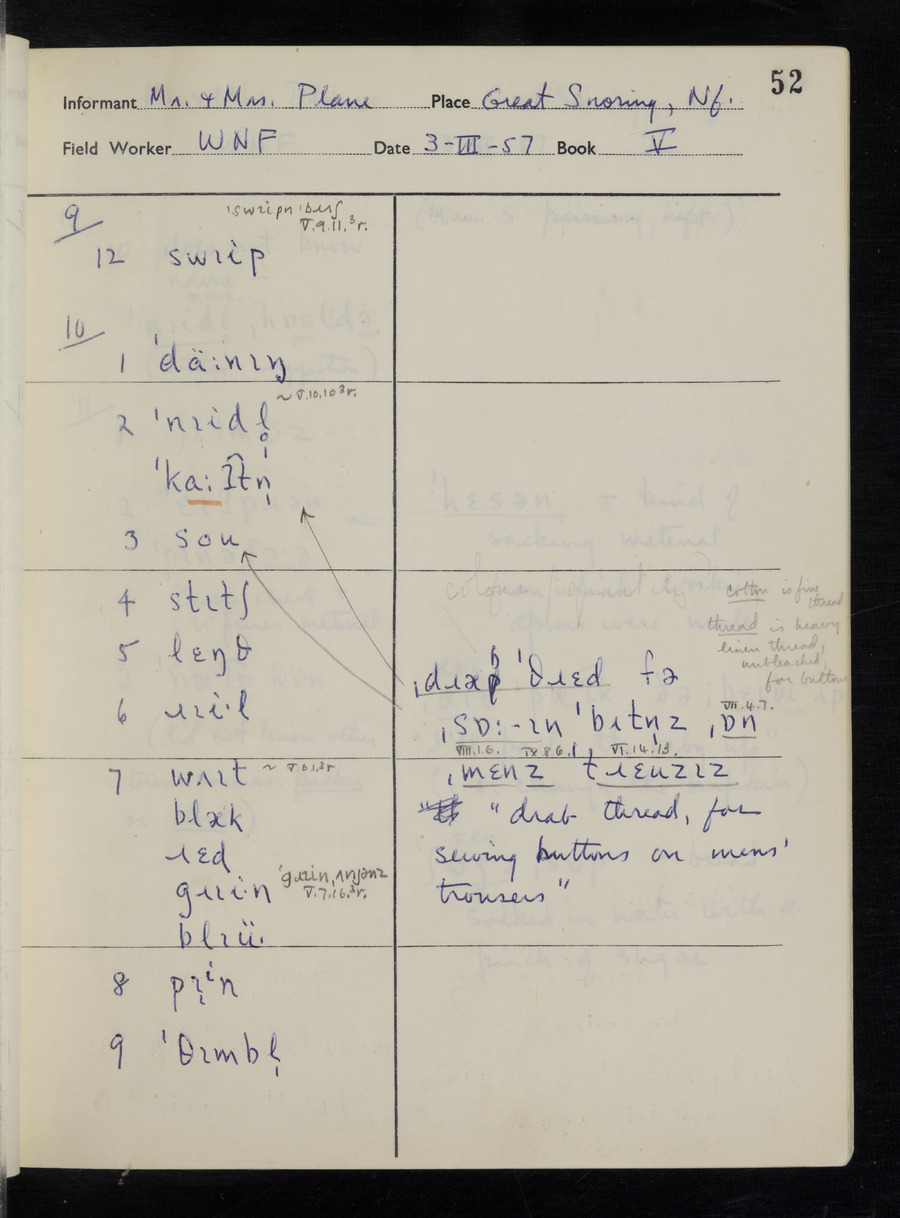 52
Informant Mr. & Mrs. Plane Place Great Snoring, Nf.
Field Worker WNF Date 3-III-57 Book V
9
V.9.11.³r.
12 swɪip
10
1 ˈdäːnɪŋ
~ V.10.10³r.
2 ˈnɪidl̥
3 sou
4 stɪtʃ
5 lɛŋθ
6 ɹɪiˑl
7 wʌɪt ~ V.6.1.³r.
blæk
ɹɛd
gɹɪin ˈgɹɪinˌʌnjənz
V.7.16.³r.
blɪüˑ
8 pɪⁱn
9 ˈθɪmbl̩
cotton is fine
thread
thread is heavy
linen thread,
unbleached,
for buttons
ˈθɹɛd fə
VII.4.7.
ˌsɒː-ɪn ˈbʌtn̩z ˌɒn
VIII.1.6. IX.8.6.1, VI.14.13.
ˌmɛnz tɹɛuzɪz
"drab thread, for
sewing buttons on mens'
trousers"